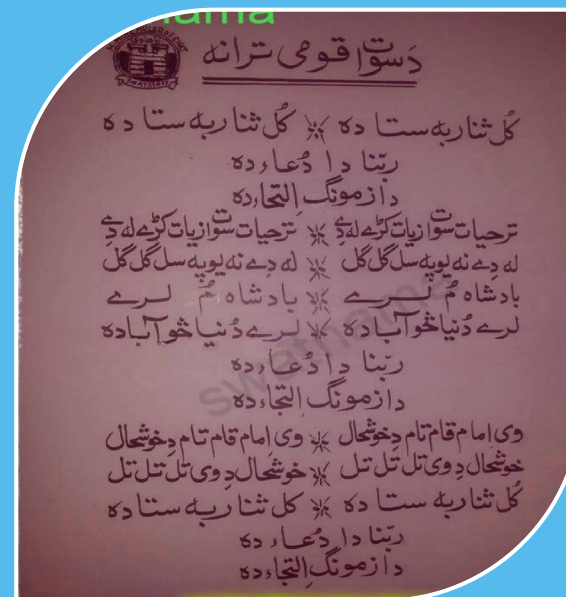 nama
SWAT STATE
دَ سوات قومی ترانه
کُل ثنا ربه ستا ده ※ کُل ثنا ربه ستا ده
ربّنا دا دُعاء ده
دا زمونګ اِلتجاء ده
ترحیات سوات زیات کړے له دے ※ ترحیات سوات زیات کړے له دے
له دے نه یو په سل ګل ګل ※ له دے نه یو په سل ګل ګل
بادشاه مُ لرے ※ بادشاه مُ لرے
لرے دُنیا څو آباده ※ لرے دُنیا څو آباده
ربّنا دا دُعاء ده
دا زمونګ اِلتجاء ده
وی امام قام تام دِ خوشحال ※ وی اِمام قام تام دِ خوشحال
خوشحال دِ وی تل تل تل ※ خوشحال دِ وی تل تل تل
کُل ثنا ربه ستا ده ※ کل ثنا ربه ستا ده
ربّنا دا دُعاء ده
دا زمونګ اِلتجاء ده
swatnama